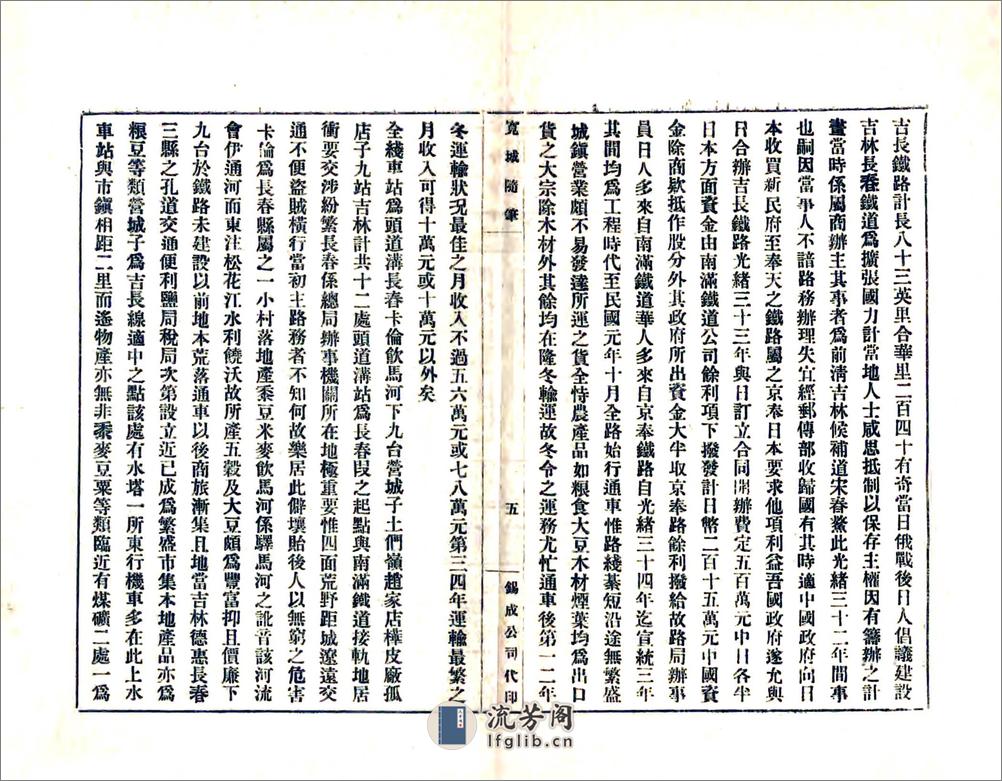 吉長鐵路計長八十三英里合華里二百四十有奇當日俄戰後日人倡議建設
吉林長春鐵道爲擴張國力計當地人士咸思抵制以保存主權因有籌辦之計
畫當時係屬商辦主其事者爲前清吉林候補道宋春鰲此光緒三十二年間事
也嗣因當事人不諳路務辦理失宜經郵傳部收歸國有其時適中國政府向日
本收買新民府至奉天之鐵路屬之京奉日本要求他項利益吾國政府遂允與
日合辦吉長鐵路光緒三十三年與日訂立合同開辦費定五百萬元中日各半
日本方面資金由南滿鐵道公司餘利項下撥發計日幣二百十五萬元中國資
金除商欵抵作股分外其政府所出資金大半取京奉路餘利撥給故路局辦事
員日人多來自南滿鐵道華人多來自京奉鐵路自光緒三十四年迄宣統三年
其間均爲工程時代至民國元年十月全路始行通車惟路綫綦短沿途無繁盛
城鎮營業頗不易發達所運之貨全恃農產品如粮食大豆木材煙葉均爲出口
貨之大宗除木材外其餘均在隆冬輸運故冬令之運務尤忙通車後第一二年
寬城隨筆
五
錫成公司代印
冬運輸狀況最佳之月收入不過五六萬元或七八萬元第三四年運輸最繁之
月收入可得十萬元或十萬元以外矣
全綫車站爲頭道溝長春卡倫飲馬河下九台營城子土們嶺趙家店樺皮廠孤
店子九站吉林計共十二處頭道溝站爲長春叚之起點與南滿鐵道接軌地居
衝要交涉紛繁長春係總局辦事機關所在地極重要惟四面荒野距城遼遠交
通不便盜賊橫行當初主路務者不知何故樂居此僻壤貽後人以無窮之危害
卡倫爲長春縣屬之一小村落地產黍豆米麥飲馬河係驛馬河之訛音該河流
會伊通河而東注松花江水利饒沃故所產五穀及大豆頗爲豐富抑且價廉下
九台於鐵路未建設以前地本荒落通車以後商旅漸集且地當吉林德惠長春
三縣之孔道交通便利鹽局稅局次第設立近已成爲繁盛市集本地產品亦爲
粮豆等類營城子爲吉長線適中之點該處有水塔一所東行機車多在此上水
車站與市鎮相距二里而遙物產亦無非黍麥豆粟等類臨近有煤礦二處一爲
流芳阁
lfglib.cn